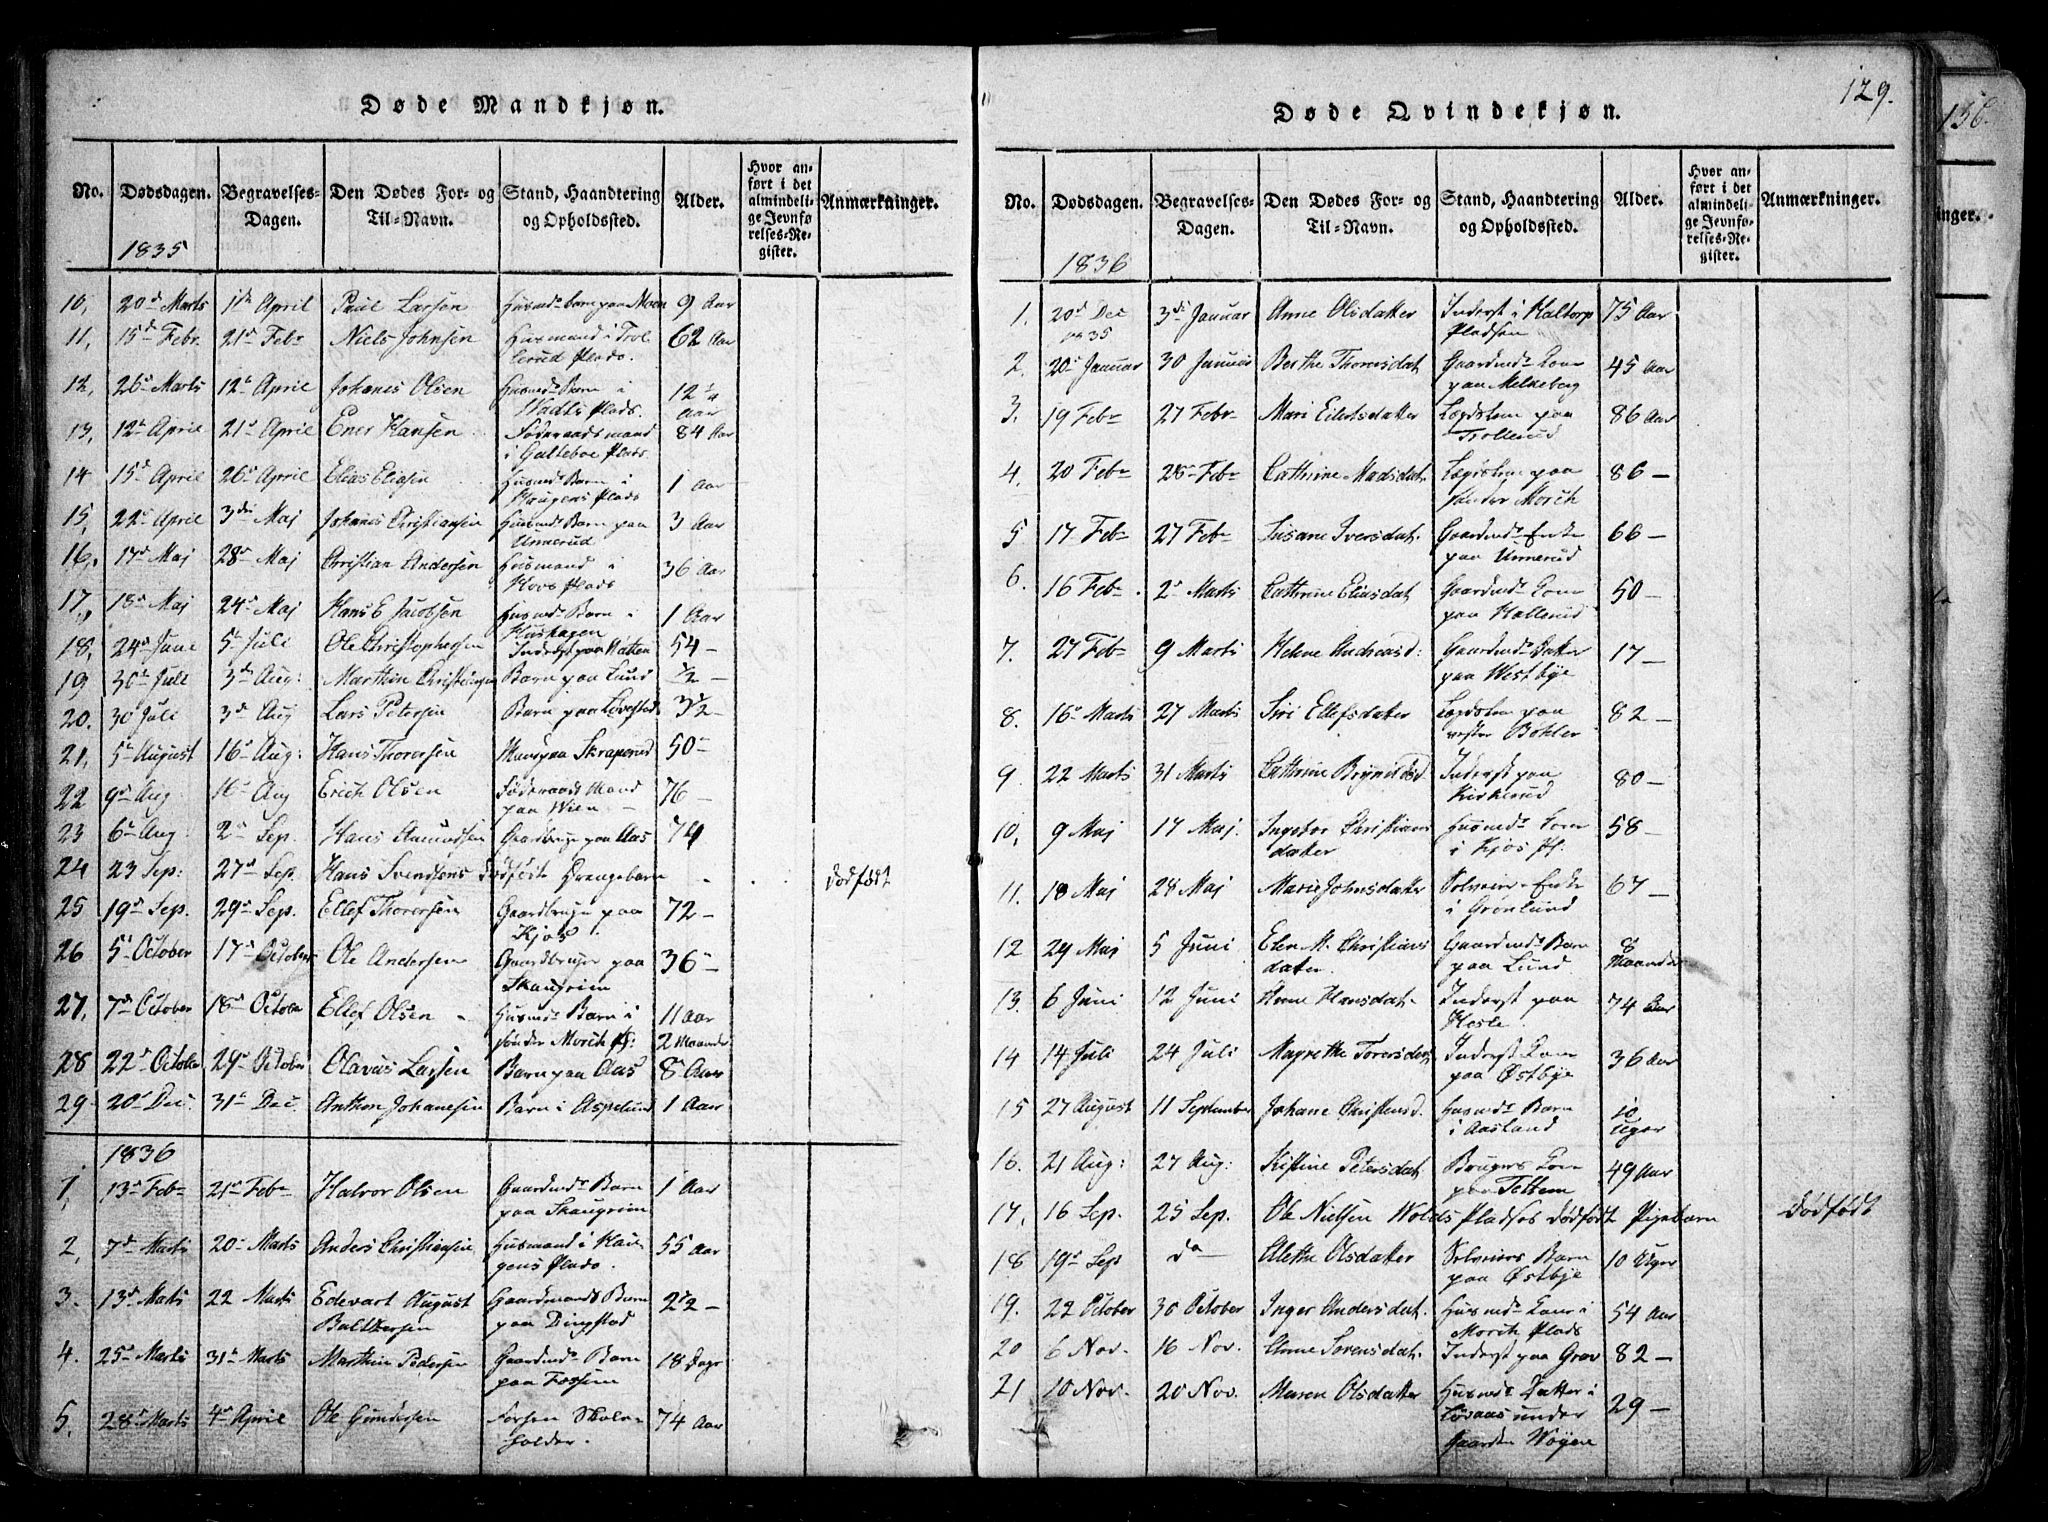 129.
136.
Døde Mandkjøn.
No. Dødsdagen. Begravelses-Dagen. Den Dødes For- og Til-Navn. Stand, Haandtering og Opholdssted. Alder. Hvor anført i det almindelige Jevnførelses-Register. Anmærkninger.
1835
10, 20d Marts 1ste April Paul Larsen Husmds barn paa Moen 9 Aar
11, 15d Febr. 21d Feb Niels Johnsen Husmand i Trollerud Plads. 62 Aar
12, 26d Marts 12te April Johanes Olsen Husmds Barn i Plads. 12 1/4 Aar
13, 12te April 21d April Ener Hansen Føderaadsmand i Plads. 84 Aar
14 15d April 26d April Elias Eliasen Husmds Barn i Haugens Plads 1 Aar
15, 22d April 3die Maj Johanes Christiansen Husmds Barn paa Unnerud 3 Aar
16, 17d Maj 28d Maj Christian Andersen Husmand i Hovs Plads 36 Aar
17, 18d Maj 24d Maj Hans E Jacobsen Husmds Barn i Hushagen 1 Aar
18, 24d Juni 5te Juli Ole Christophersen Inderst paa 54 -
19 30te Juli 3die Aug: Marthin Christiansen Barn paa Lund 1/2 -
20. 30 Juli 3die Aug Lars Petersen Barn paa Løvestad 3 1/2 -
21, 5te August 16d Aug: Hans Thoresen paa Skraperud 50 -
22 9d Aug 16d Aug Erich Olsen Føderaads Mand paa Wien - 76 -
23 6te Aug: 2d Sep. Hans Amundsen Gaardbruger paa Aas 74
24 23 Sep: 27d Sep. Hans Svendsens dødfødte Drengebarn - dødfødt
25 19d Sep. 29d Sep. Ellef Thoresen Gaardbruger paa Kjos 72 -
26 5te October 17d October Ole Andersen Gaardbruger paa Skaugrim 36 -
27. 7d October 18d October Ellef Olsen - Husmds Barn i sønder Morch Pl: 11 Aar 2 Maander
28 22d October 29d October Olavus Larsen Barn paa Aas 8 Aar
29 20d Dec. 31te Dec. Anthon Johanesen Barn i Aspelund 1 Aar
1836
1, 13d Feb 21d Feb Halvor Olsen Gaardmds Barn paa Skaugrim 1 Aar
2, 7d Marts 20d Marts Anders Christiansen Husmand i Haugens Plads. 55 Aar
3. 13d Marts 22 Marts Edevart August Baltzersen Gaardmands Barn paa Ringstad 2 1/2 -
4. 25d Marts 31te Marts Marthin Pedersen Gaardmds Barn paa Fossum 18 Dage
5. 28d Marts 4d April Ole Gundersen Skoleholder. 74 Aar
Døde Qvindekjøn.
No. Dødsdagen. Begravelses-Dagen. Den Dødes For- og Til-Navn. Stand, Haandtering og Opholdssted. Alder. Hvor anført i det almindelige Jevnførelses-Register. Anmærkninger.
1836
1. 20d Dec 1835 3die Januar Anne Olsdatter Inderst i Haltorp Pladsen 75 Aar
2, 20d Januar 30 Januar Berthe Thoresdat Gaardmds Kone paa Melkeberg 45 Aar
3. 19 Feb 27 Febr Mari Eilertsdatter Lægdslem paa Trollerud 86 Aar
4, 20 Feb 28 Feb Cathrine Madsdat. Lægdslem paa sønder Morch 86 -
5 17 Feb 27 Feb Susane Iversdat. Gaardmds Enke paa Unnerud 66 -
6. 16 Feb 2d Marts Cathrine Eliasdat Gaardmds Kone paa Hallerud 50 -
7. 27 Feb 9 Marts Helene Andreasd: Gaardmds Datter paa Westbye 17 -
8. 16d Marts 27 Marts Siri Ellefsdatter Lægdslem paa vester Bøhler 82 -
9. 22 Marts 31 Marts Cathrine Brynildsd. Inderst paa Kirkerud 80 -
10, 9 Maj 17 Maj. Ingebor Christiansdatter Husmds Kone i Kjos Pl. 58 -
11. 18 Maj 28 Maj Marie Johnsdatter Selveier-Enke i Grønlund 67 -
12 29 Maj 5 Juni Elen M. Christiansdatter. Gaardmds Barn paa Lund 8 Maander
13. 6 Juni 12 Juni Anne Hansdat. Inderst paa Hosle. 74 Aar
14 14 Juli 24 Juli Magrethe Toresdat. Inderst Kone paa Østbye 36 Aar
15 27 August 11 September Johane Christensd. Husmds Barn i Aasland 10 Uger
16. 21 Aug: 27 Aug: Kistine Petersdat. Brugers Kone paa Tettem 49 Aar
17, 16 Sep. 25 Sep. Ole Nielsen Wolds Pladses dødfødt Pigebarn dødfødt
18 19d Sep do Alethe Olsdatter Selveiers Barn paa Østbye 10 Uger
19. 22 October 30 October Inger Andersdat. Husmds Kone i Morch Plads 54 Aar
20 6 Nov. 16 Nov. Anne Sorensdat. Inderst paa Grav 82 -
21 10 Nov. 20 Nov. Maren Olsdatter Husmds Datter i Løvaas under Gaarden Wøyen 29 -